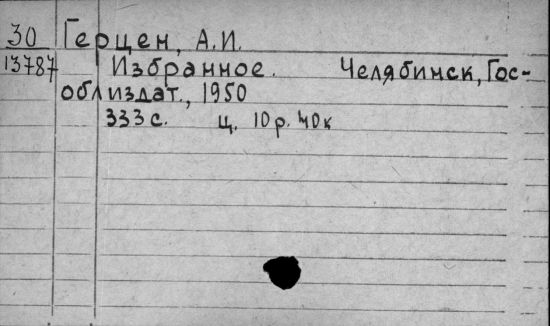 30 Герцен, А.И.
13787 Избранное. Челябинск, Гос-
облиздат., 1950
333 с. ц. 10 р. 40 к